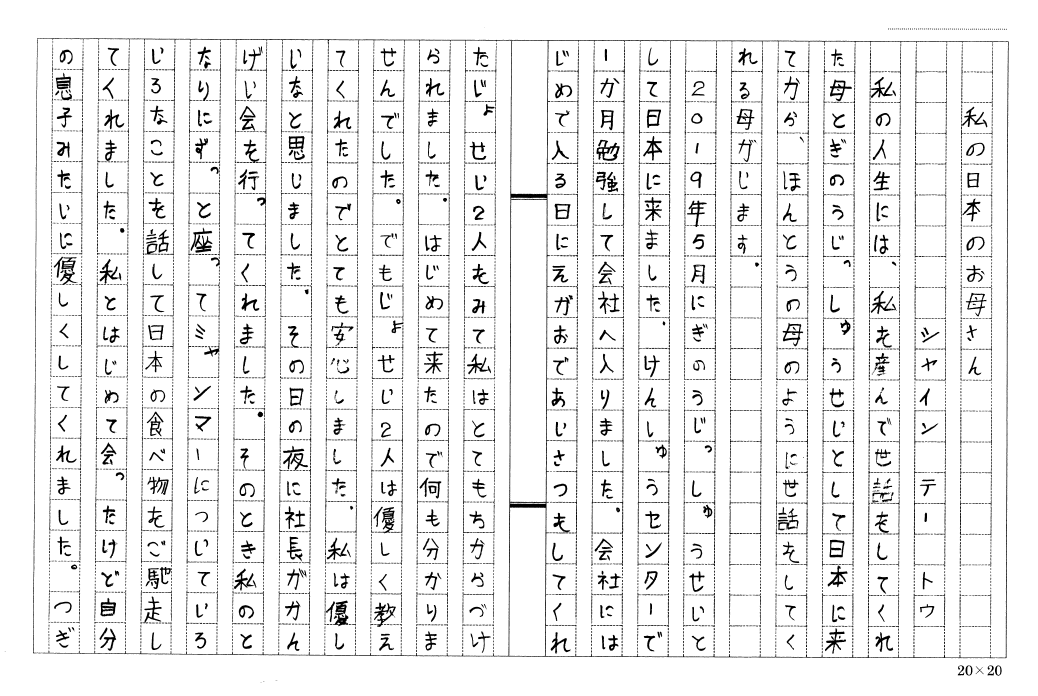 私の日本のお母さん
シャイン　テート　トウ
私の人生には、私を産んで世話をしてくれ
た母とぎのうじっしゅうせいとして日本に来
てから、ほんとうの母のように世話をしてく
れる母がじます。
２０１９年５月にぎのうじっしゅうせいと
して日本に来ました。けんしゅうセンターで
１か月勉強して会社へ入りました。会社には
じめで入る日にえがおであじさつもしてくれ
たじょせい２人をみて私はとてもちからづけ
られました。はじめて来たので何も分かりま
せんでした。でもじょせじ２人は優しく教え
てくれたのでとても安心しました。私は優し
じなと思じました。その日の夜に社長がかん
げい会を行ってくれました。そのとき私のと
なりにずっと座ってミャンマーについていろ
じろなことを話して日本の食べ物をご馳走し
てくれました。私とはじめて会ったけど自分
の息子みたいに優しくしてくれました。つぎ
20×20